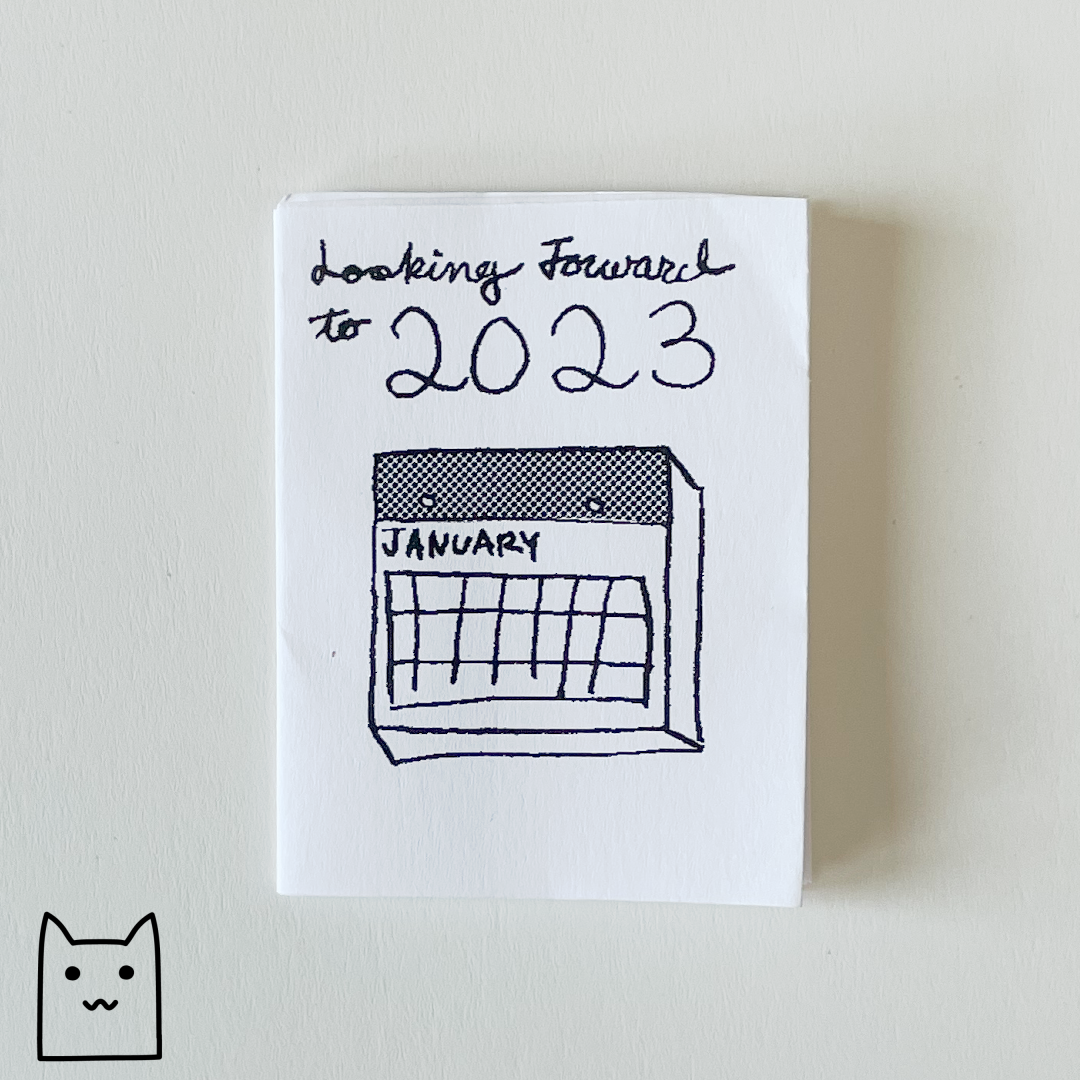 Looking Forward
to 2023
JANUARY